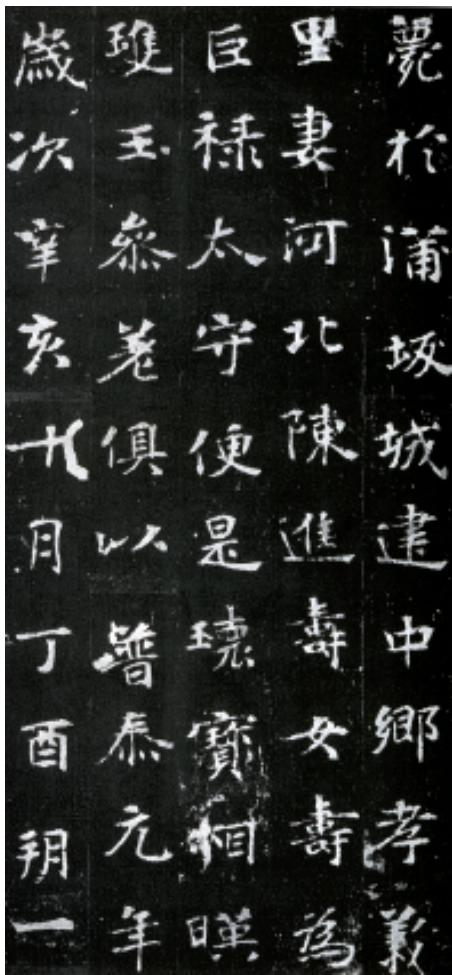 薨於蒲坂城建中鄉孝義
里妻河北陳進壽女壽為
巨禄太守便是瓌寶相暎
瓊玉參差俱以普泰元年
歲次辛亥十月丁酉朔一